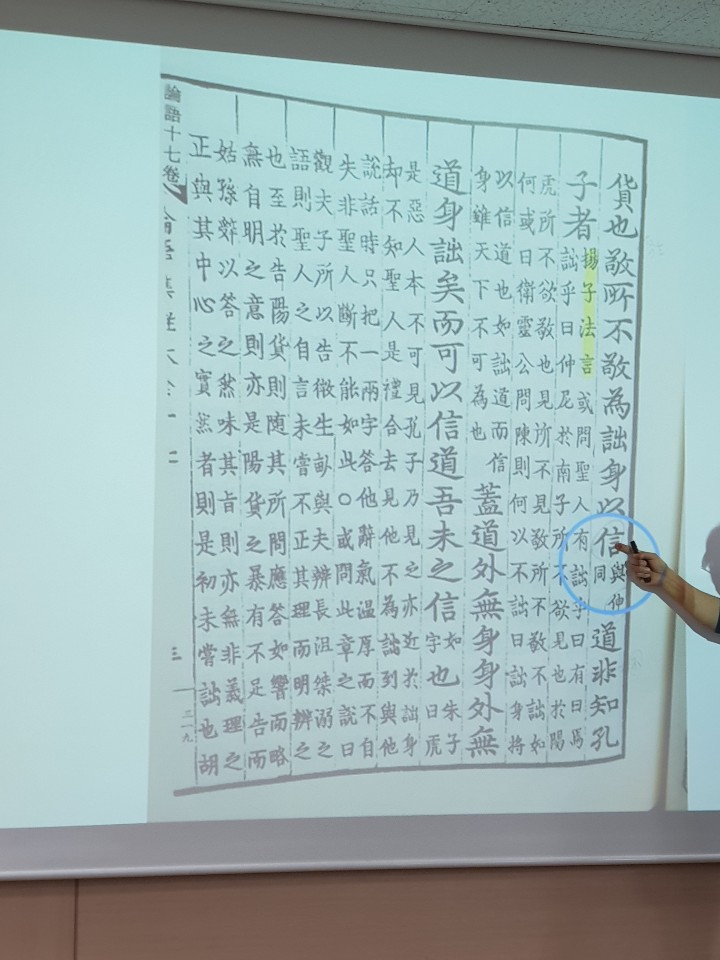 貨也敬所不敬為詘身以信與伸同道非知孔
子者揚子法言或問聖人有詘乎曰有曰焉
詘乎曰仲尼於南子所不欲見也於陽
虎所不欲敬也見所不見敬所不敬不詘如
何或曰衛靈公問陳則何以不詘曰詘身將
以信道也如詘道而信
身雖天下不可為也蓋道外無身身外無
道身詘矣而可以信道吾未之信如字也朱子曰虎
是惡人本不可見孔子乃見之亦近於詘身
却不知聖人是禮合去見他不為詘到與他
說話時只把一兩字答他辭氣溫厚而不自
失非聖人斷不能如此○或問此章之說曰
觀夫子所以告微生畝與夫辨長沮桀溺之
語則聖人之自言未嘗不正其理而明辨之
也至於告陽貨則隨其所問應答如響而略
無自明之意則亦是陽貨之暴有不足告而
姑孫辭以答之然味其旨則亦無非義理之
正與其中心之實然者則是初未嘗詘也胡
論語十七卷 論語集註大全十 三 三一九